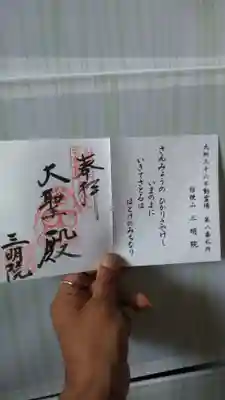 九州三十六不動霊場　第八番札所
三明院
さんみょうの　ひかりさやけし
いまのよに
いきてさとるは
ほとけのみちなり
奉拝
大聖殿
三明院